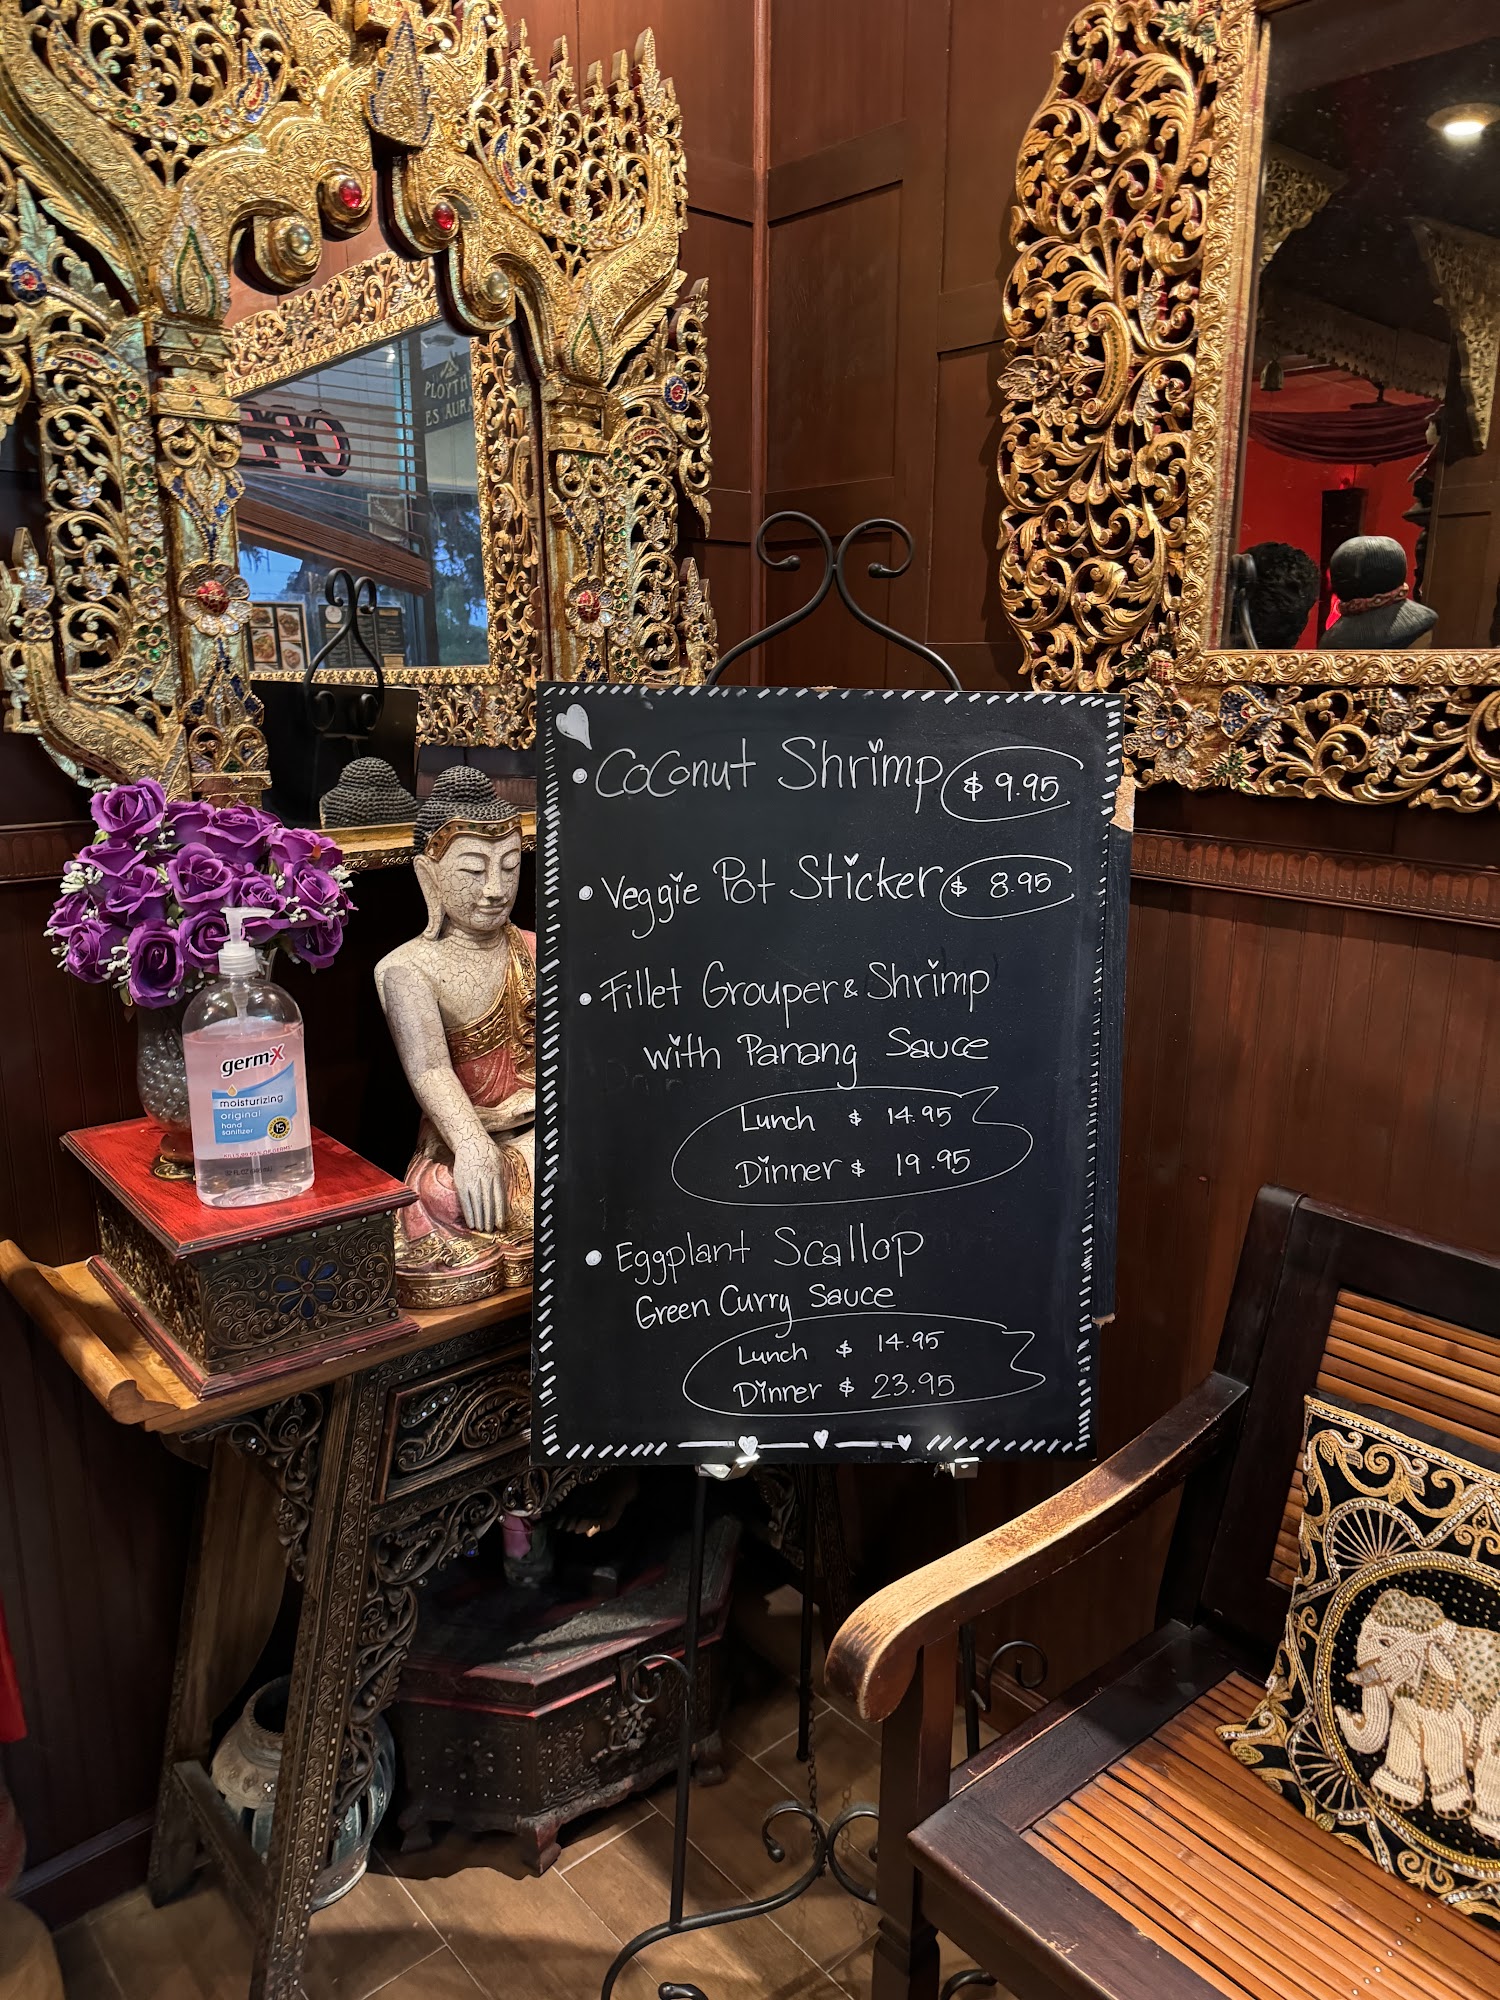 Coconut Shrimp $ 9.95
Veggie Pot Sticker $ 8.95
Fillet Grouper & Shrimp
with Panang Sauce
Lunch $ 14.95
Dinner $ 19.95
Eggplant Scallop
Green Curry Sauce
Lunch $ 14.95
Dinner $ 23.95
germ-x
moisturizing
original
hand
sanitizer
KILLS 99.99% OF GERMS*
PLOYTH